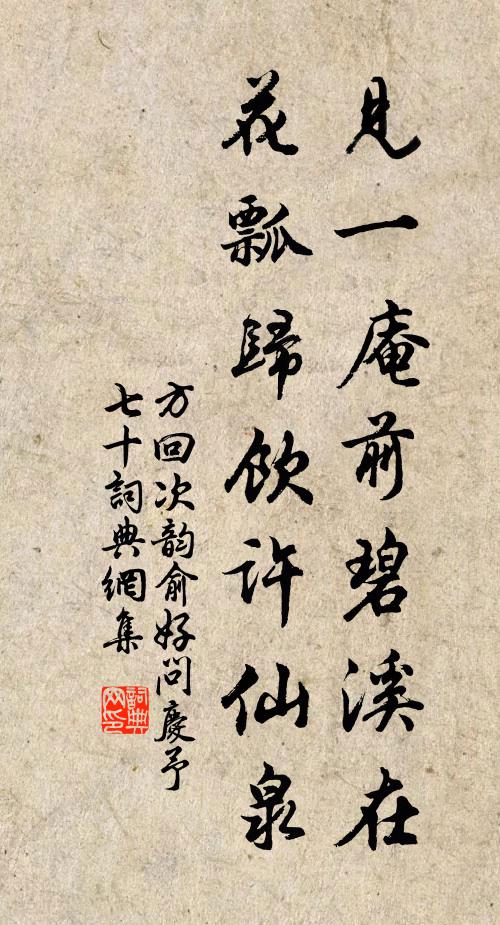 見一庵前碧溪在
花瓢歸飲許仙泉
方回次韵俞好問慶予
七十詞典網集
詞典网印